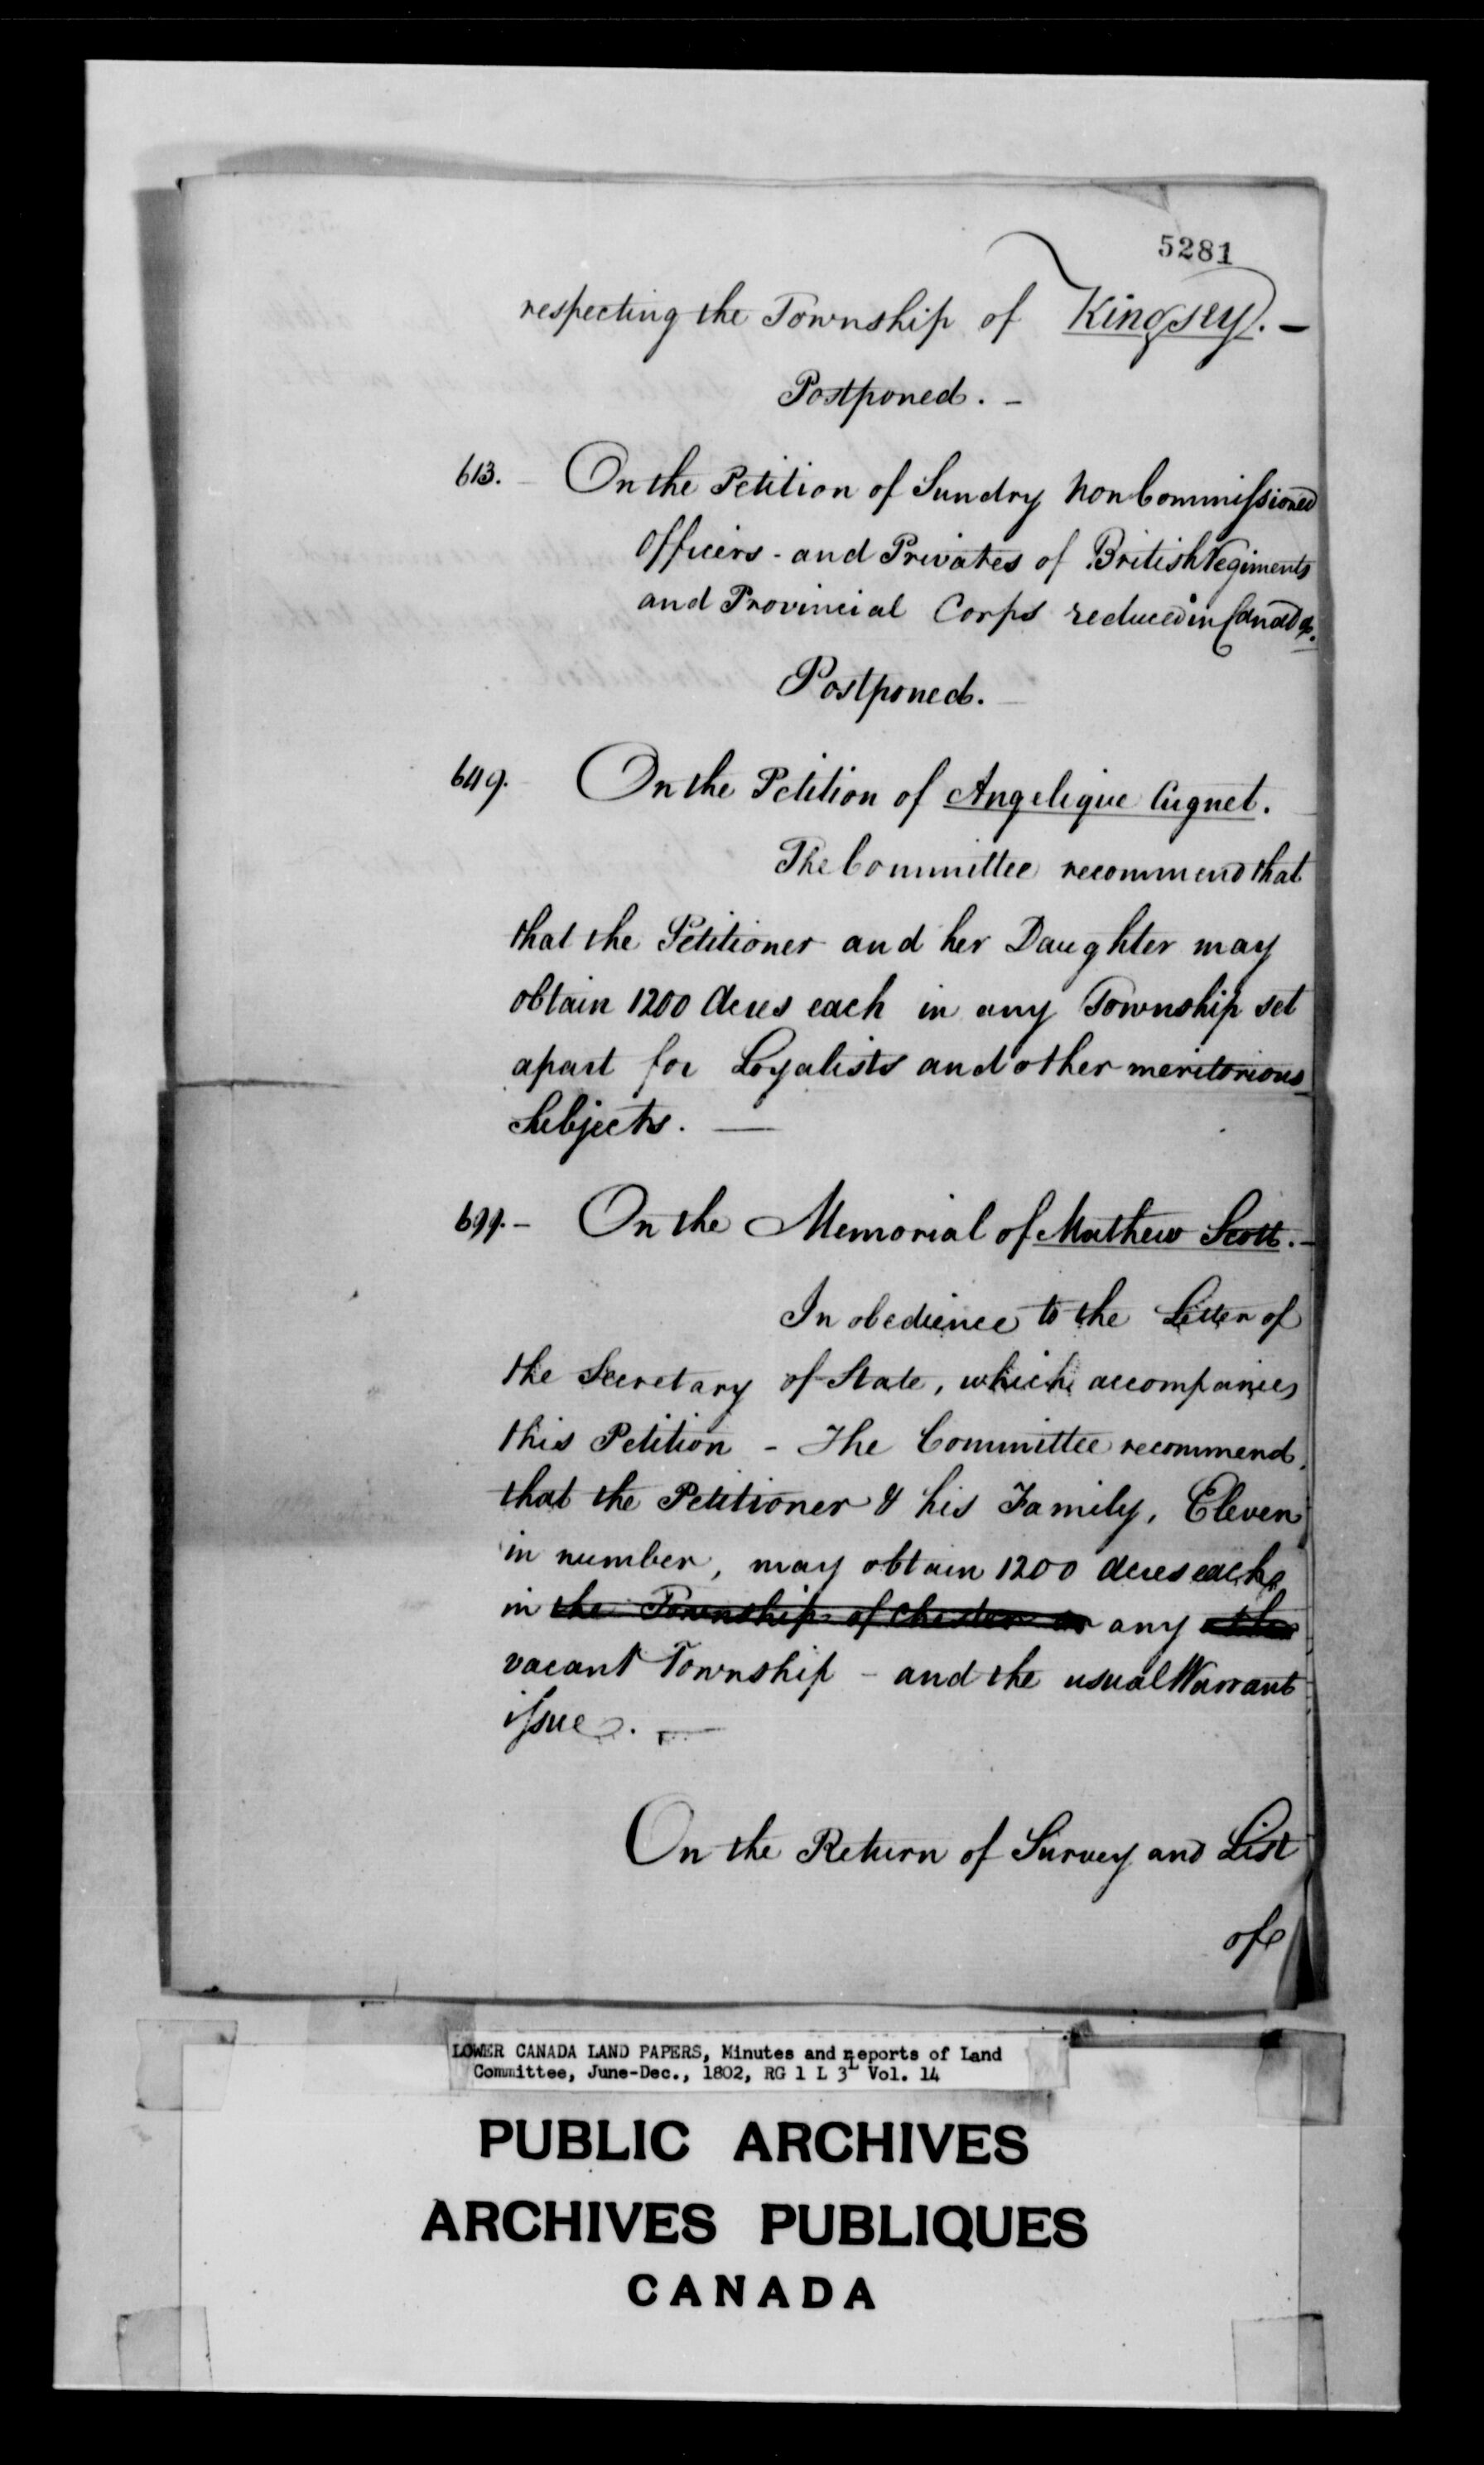 5281
respecting the Township of Kingsey. -
Postponed. -
613. - On the Petition of Sundry Non Commissioned
Officers - and Privates of British Regiments
and Provincial Corps reduced in Canada.
Postponed. -
649. - On the Petition of Angelique Cugnet.
The Committee recommend that
that the Petitioner and her Daughter may
obtain 1200 Acres each in any Township set
apart for Loyalists and other meritorious
Subjects. —
699. - On the Memorial of Mathew Scott. -
In obedience to the Letter of
the Secretary of State, which accompanies
this Petition - The Committee recommend
that the Petitioner & his Family, Eleven
in number, may obtain 1200 Acres each
in the Township of Chester or any other
vacant Township - and the usual Warrant
issue. —
On the Return of Survey and List
of
LOWER CANADA LAND PAPERS, Minutes and Reports of Land
Committee, June-Dec., 1802, RG 1 L 3L Vol. 14
PUBLIC ARCHIVES
ARCHIVES PUBLIQUES
CANADA